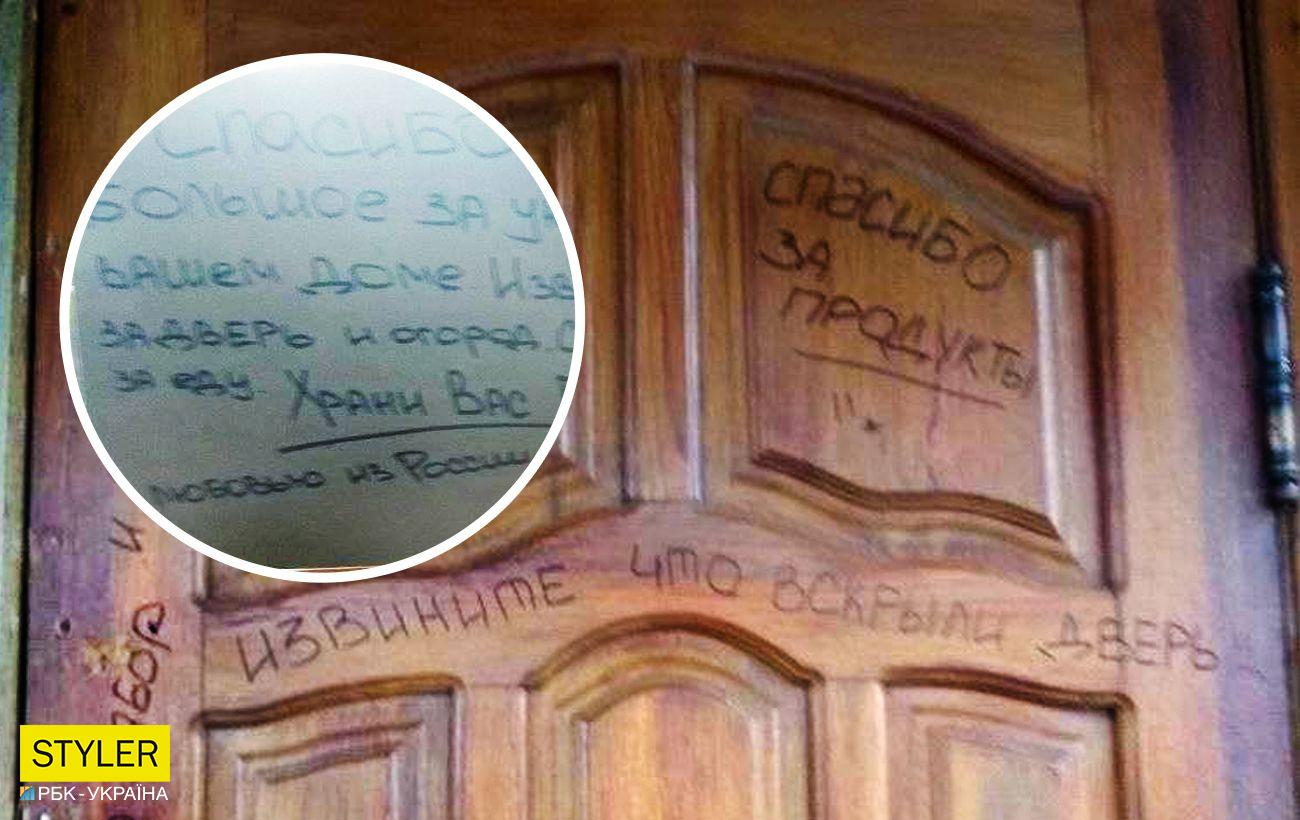 Спасибо
большое за
вашем доме
за дверь и огород.
за еду. Храни Вас
любовью из России
СПАСИБО
ЗА
ПРОДУКТЫ
!!.
ИЗВИНИТЕ ЧТО ВСКРЫЛИ ДВЕРЬ
и
STYLER
РБК-УКРАЇНА